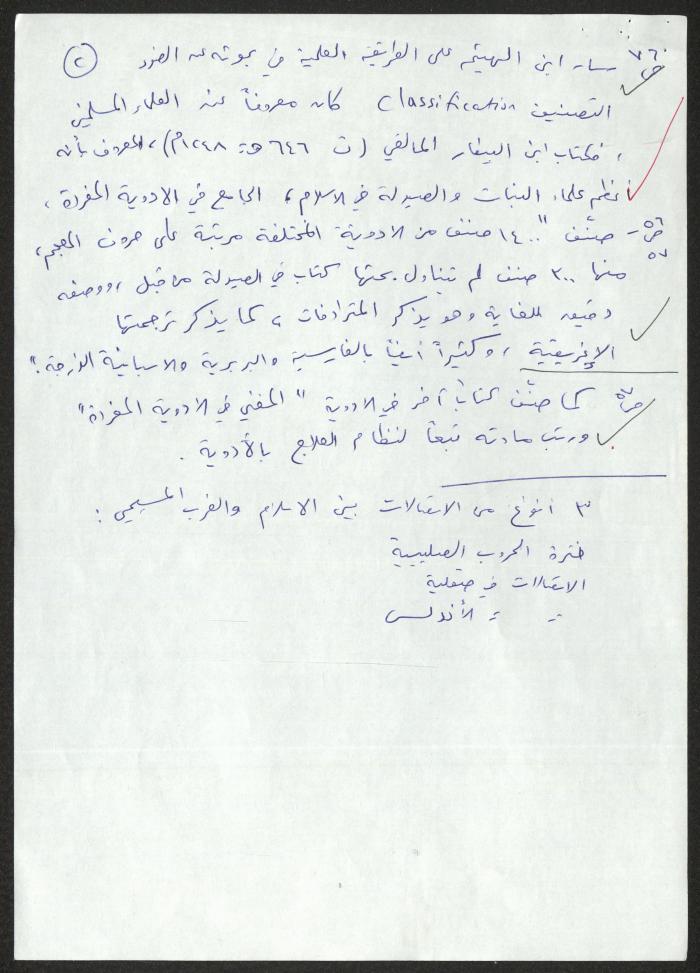 ص٧٦ سار ابن الهيثم على الطريقة العلمية في بحوثه عن الضوء ②
التصنيف Classification كان معروفاً عند العلماء المسلمين
، فكتاب ابن البيطار المالقي (ت ٦٤٦ هـ = ١٢٤٨م)، المعروف بأنه
أعظم علماء النبات والصيدلة في الاسلام، الجامع في الادوية المفردة،
ص٥٦ - صنّف "١٤٠٠ صنف من الادوية المختلفة مرتبة على حروف المعجم،
٥٧ منها ٣٠٠ صنف لم تتناول بحثها كتاب في الصيدلة من قبل، ووصفه
دقيق للغاية وهو يذكر المترادفات، كما يذكر ترجمتها
الإغريقية، وكثيراً أيضاً بالفارسية والبربرية والاسبانية الدارجة."
ص٥٧ كما صنّف كتاباً آخر في الادوية "المغني في الادوية المفردة"
ورتب مادته تبعاً لنظام العلاج بالأدوية.
٣ أنواع من الاتصالات بين الاسلام والغرب المسيحي:
فترة الحروب الصليبية
الاتصالات في صقلية
= = الأندلس